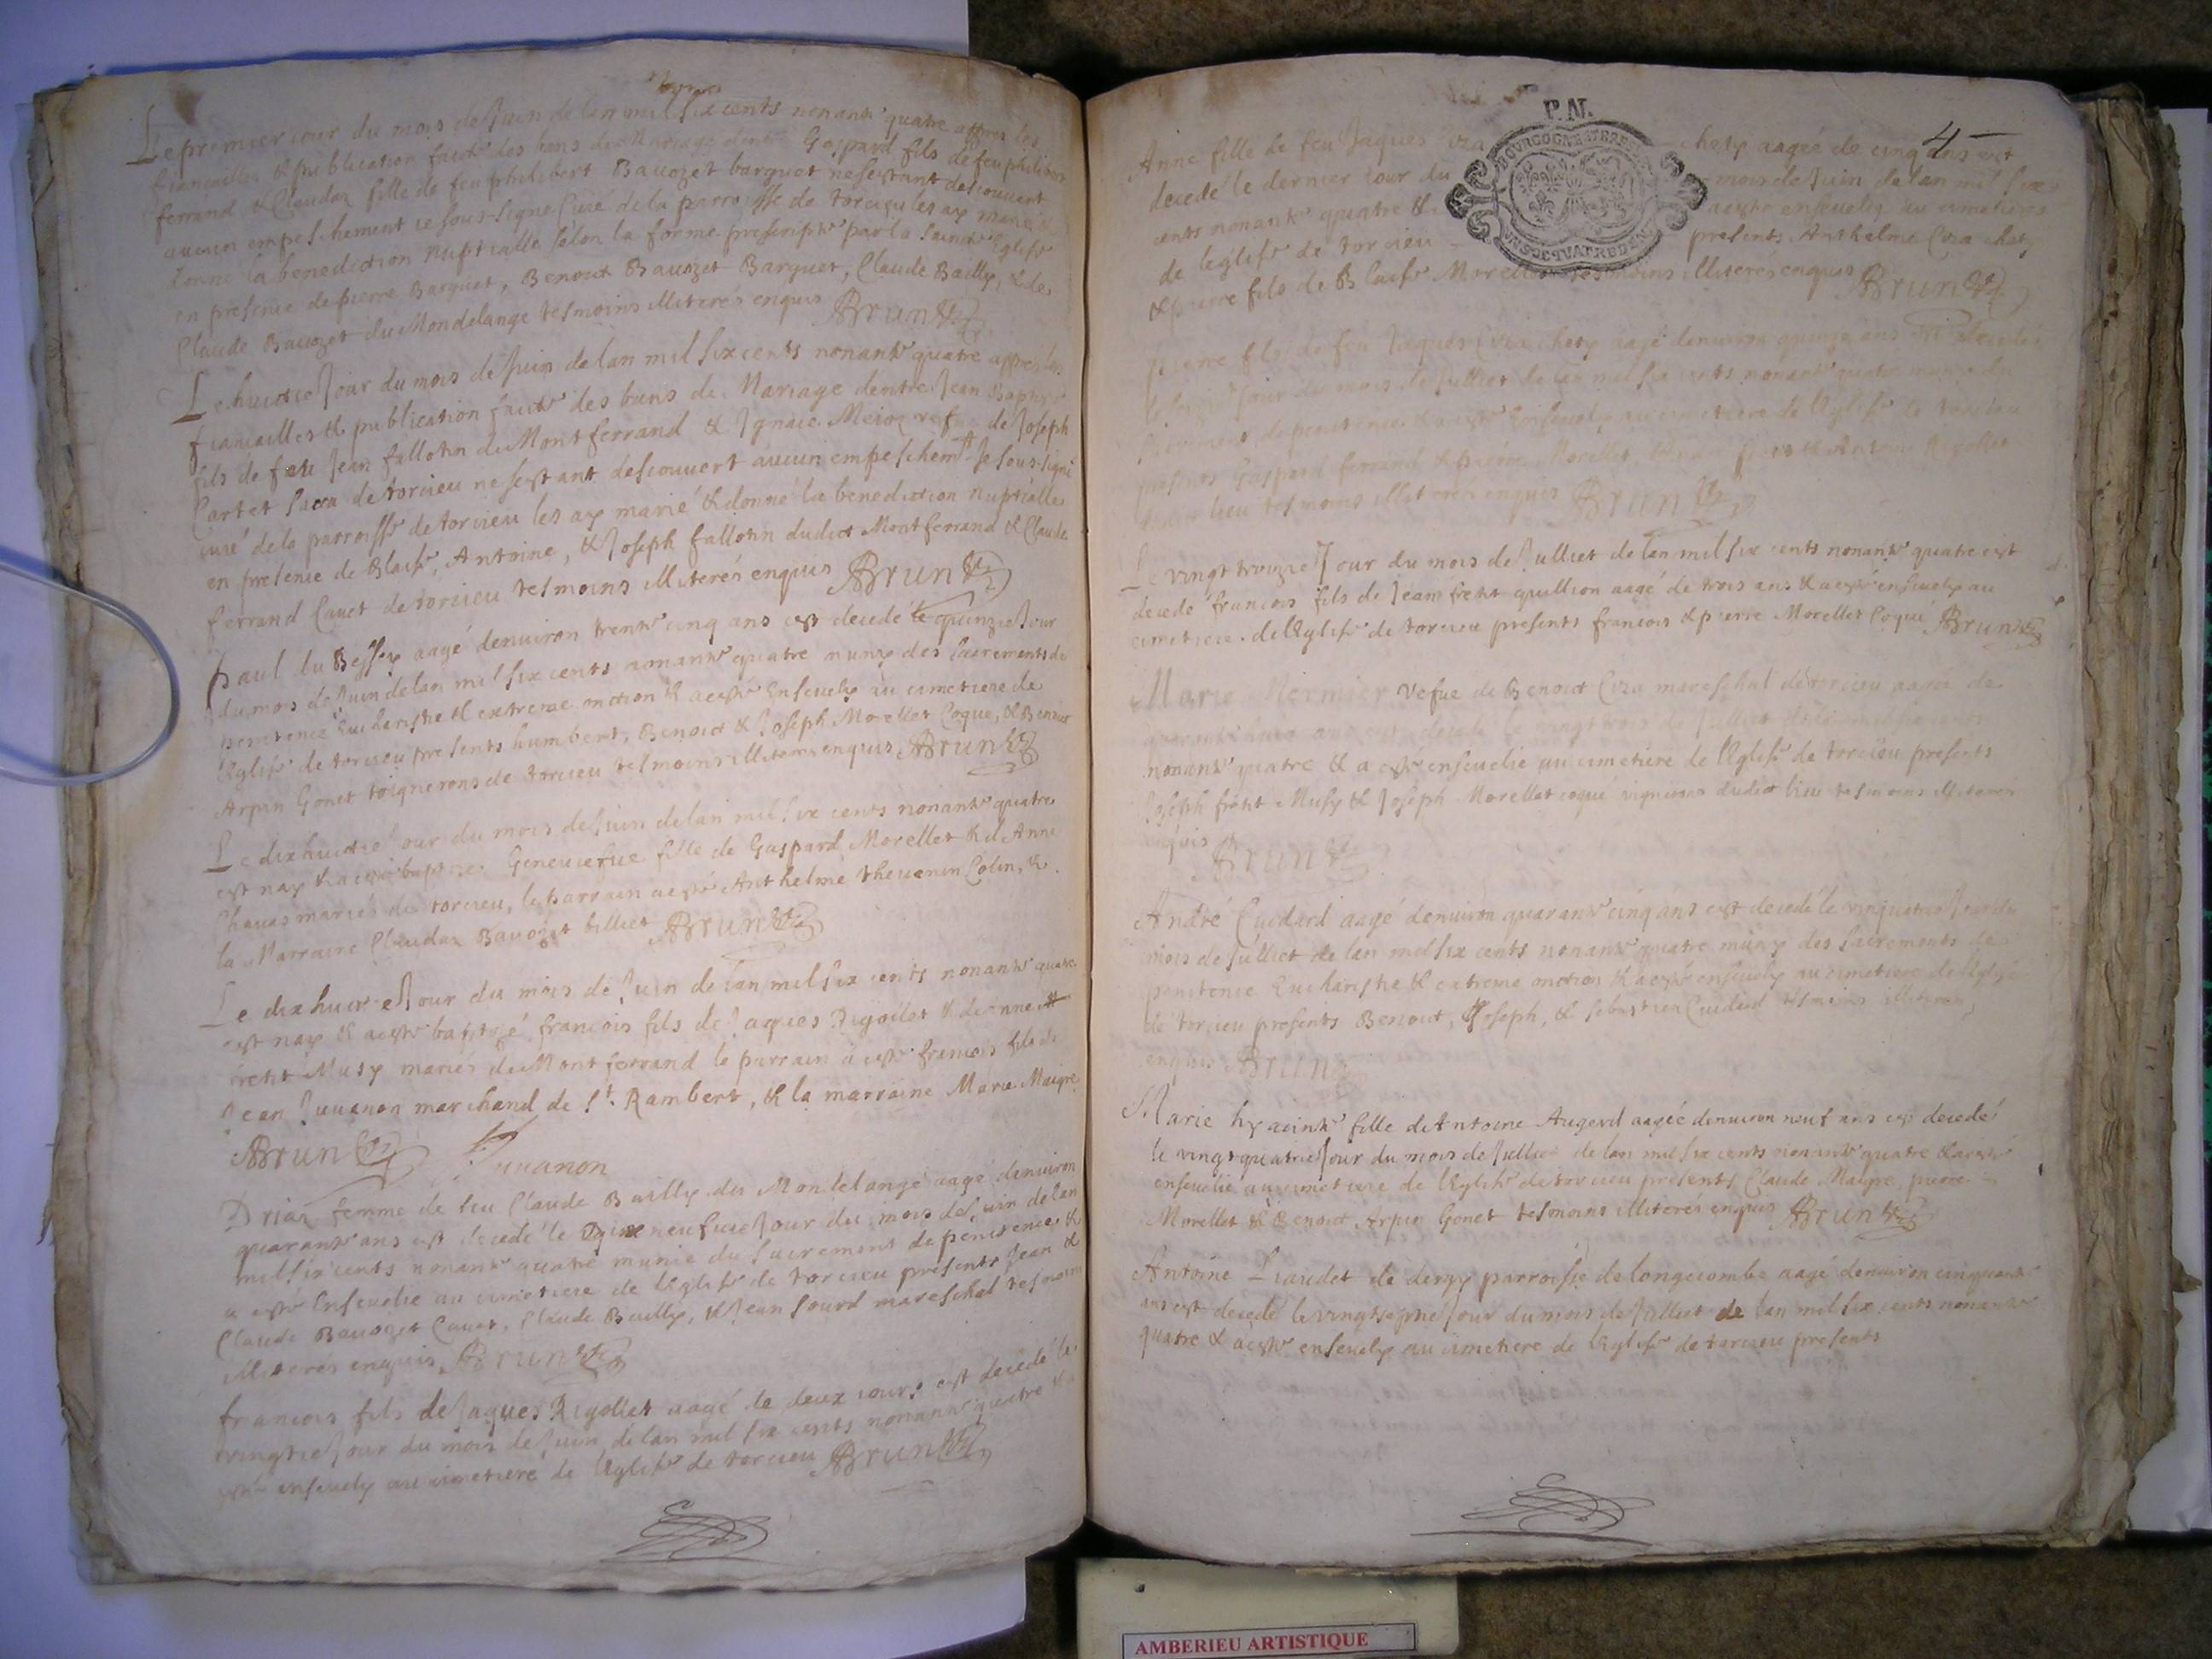 Le premier iour du mois de Juin de lan mil six cents nonante quatre appres les
fiancailles & publication faicte des bans de Mariage dentre Gaspard fils de feu philibert
ferrand & Claudaz fille de feu philibert Bauozet barquet ne sestant descouuert
aucun empeschement ie sous-signé Curé de la parroisse de torcieu les ay marié &
donné la benediction nuptialle selon la forme prescripte par la saincte Eglise
en presence de pierre Barquet, Benoict Bauozet Barquet, Claude Bailly, & de
Claude Bauozet du Mondelange tesmoins illiterés enquis Brun
Le huictie Jour du mois de Juin de lan mil six cents nonante quatre appres les
fiancailles & publication faicte des bans de Mariage dentre Jean Baptiste
fils de feu Jean fallotin de Montferrand & Ignace de Joseph
Cartet de torcieu ne sestant descouuert aucun empeschemt. Je sous-signé
curé de la parroisse de torcieu les ay marié & donné la benediction nuptialle
en presence de Blaise, Antoine, & Joseph fallotin dudict Montferrand & Claude
ferrand Cauet de torcieu tesmoins illiterés enquis Brun
paul du Bessey aagé denuiron trente cinq ans est decedé le quinzie Jour
du mois de Juin de lan mil six cents nonante quatre muny des sacrements de
penitence Eucharistie & extreme onction & a esté Enseuely au cimetiere de
lEglise de torcieu presents humbert, Benoict & Joseph Morellet Coque, & Benoict
Arpin Gonet vignerons de torcieu tesmoins illiterés enquis Brun
Le dixhuictie Jour du mois de Juin de lan mil six cents nonante quatre
est nay & a esté baptisee Geneuiefue fille de Gaspard Morellet & d Anne
Chauas mariés de torcieu, le parrain a esté Anthelme theuenin Colin, &
la Marraine Claudaz Bauozet billiet Brun
Le dixhuictie Jour du mois de Juin de lan mil six cents nonante quatre
est nay & a esté baptizé francois fils de Jaques Rigollet &
fretit Musy mariés de Montferrand le parrain a esté francois fils de
Jean Juuanon marchand de St. Rambert, & la marraine Marie Maigre
Brun Juuanon
Driaz femme de feu Claude Bailly du Mondelange aagé denuiron
quarante ans est decedé le dixneufuie Jour du mois de Juin de lan
mil six cents nonante quatre munie du sacrement de penitence &
a esté Enseuelie au cimetiere de lEglise de torcieu presents Jean &
Claude Bauozet Cauet, Claude Bailly, & Jean sourd mareschal tesmoins
illiterés enquis Brun
francois fils de Jaques Rigollet aagé de deux iours est decedé le
vingtie Jour du mois de Juin de lan mil six cents nonante quatre & a
esté enseuely au cimetiere de lEglise de torcieu Brun
P. N.
BOURGOGNE ET BRESSE
4
Anne fille de feu Jaques Cra chety aagee de cinq ans est
decedé le dernier Jour du mois de Juin de lan mil six
cents nonante quatre & a esté enseuely au cimetiere
de leglise de torcieu presents Anthelme Cra chet
& pierre fils de Blaise Morellet tesmoins illiterés enquis Brun
pierre fils de feu Jaques Cra chety aagé denuiron quinze ans est decedé
le Jour du mois de Julliet de lan mil six cents nonante quatre muni du
sacrement de penitence & a esté Enseuely au cimetiere de lEglise de torcieu
presents Gaspard ferrand & pierre Morellet & Antoine Rigollet
lieu tesmoins illiterés enquis Brun
Le vingt troizie Jour du mois de Julliet de lan mil six cents nonante quatre est
decedé francois fils de Jean fretit quillion aagé de trois ans & a esté enseuely au
cimetiere de lEglise de torcieu presents francois & pierre Morellet Coque Brun
Marie Mermier vefue de Benoict Cra mareschal de torcieu aagée de
quarante ans est decedé le vingt trois de Julliet de lan mil six cents
nonante quatre & a esté enseuelie au cimetiere de lEglise de torcieu presents
Joseph fretit Musy & Joseph Morellet coque vignerons dudict lieu tesmoins illiterés
enquis Brun
André Cuidard aagé denuiron quarante cinq ans est decedé le vingtquatrie Jour du
mois de Julliet de lan mil six cents nonante quatre muny des sacrements de
penitence Eucharistie & extreme onction & a esté enseuely au cimetiere de lEglise
de torcieu presents Benoict, Joseph, & sebastien Cuidard tesmoins illiterés
enquis Brun
Marie hyacinte fille de Antoine Augerd aagée denuiron neuf ans est decedé
le vingtquatrie Jour du mois de Julliet de lan mil six cents nonante quatre & a esté
enseuelie au cimetiere de lEglise de torcieu presents Claude Maigre, pierre
Morellet & Benoict Arpin Gonet tesmoins illiterés enquis Brun
Antoine Liaudet de dergy parroisse de longecombe aagé denuiron cinquante
ans est decedé le vingtseptie Jour du mois de Julliet de lan mil six cents nonante
quatre & a esté enseuely au cimetiere de lEglise de torcieu presents
AMBERIEU ARTISTIQUE